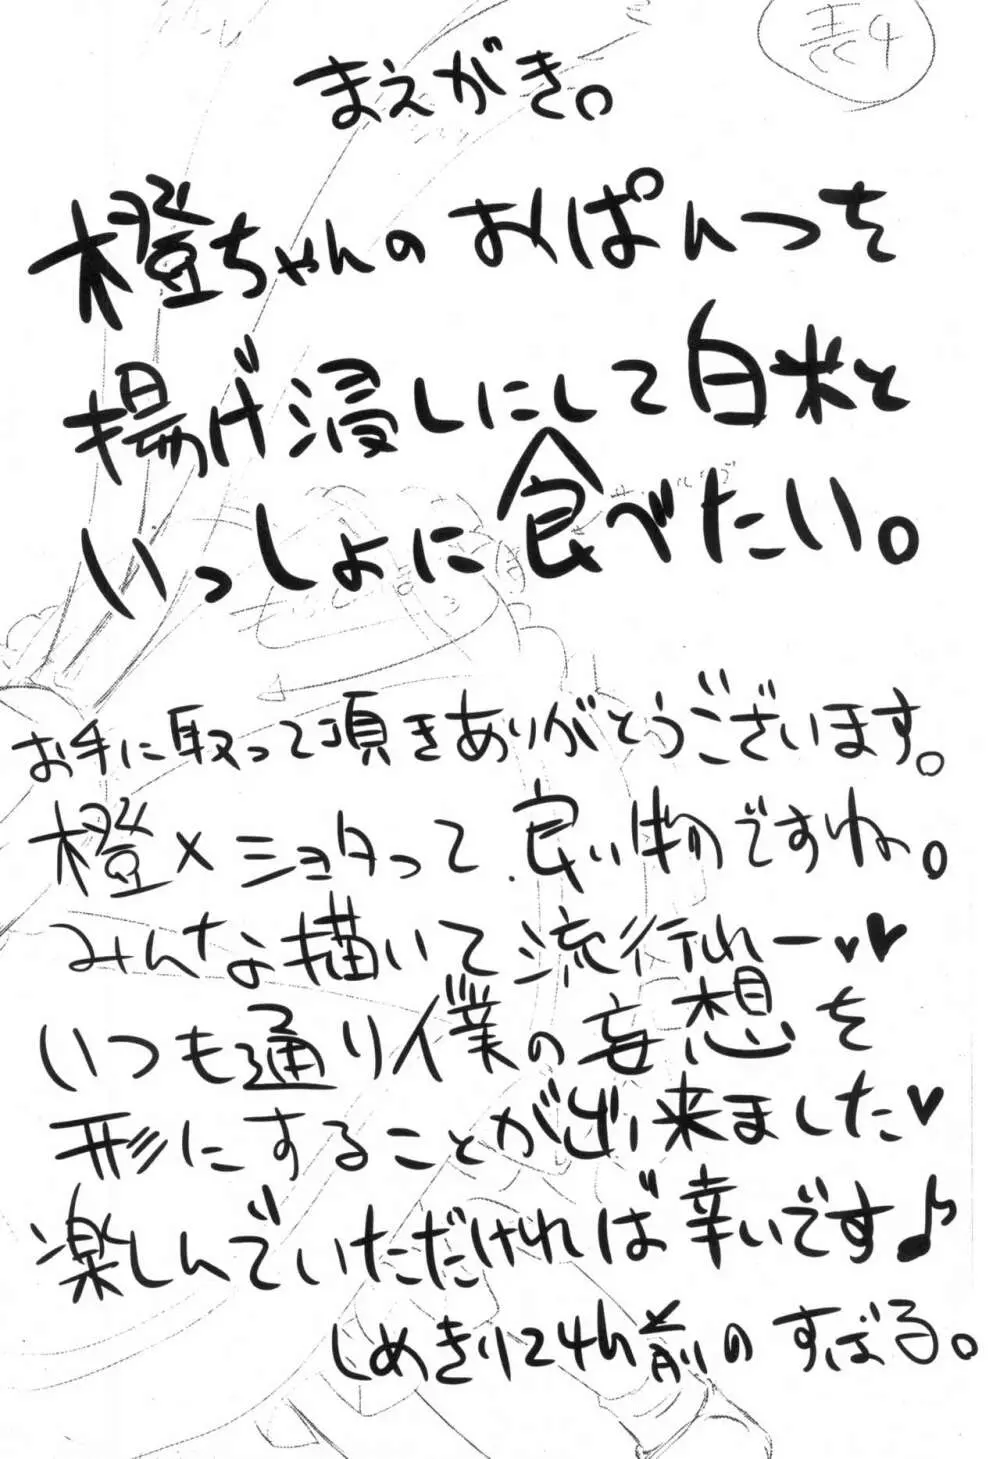 表4
まえがき。
橙ちゃんのおぱんつを
揚げ浸しにして白米と
いっしょに食べたい。
お手に取って頂きありがとうございます。
橙×ショタって良い物ですね。
みんな描いて流行れー♥♥
いつも通り僕の妄想を
形にすることが出来ました♥
楽しんでいただければ幸いです♪
しめきり24h前のすばる。